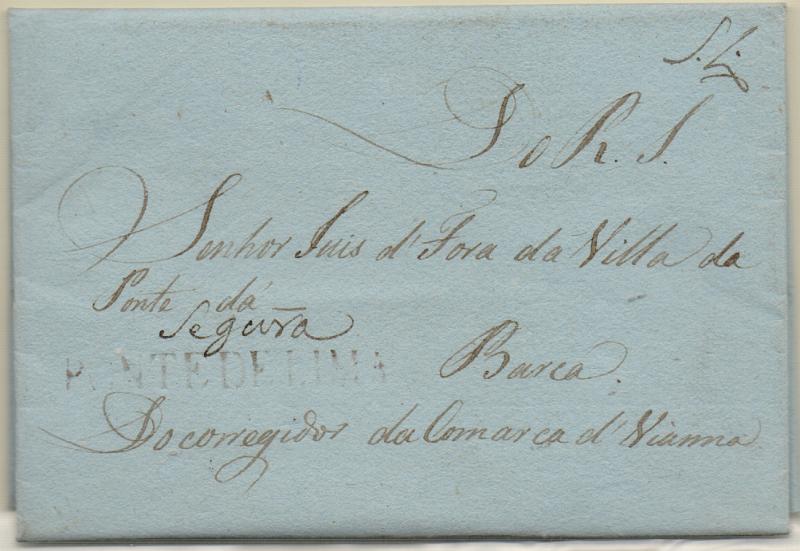 S. L.
Do R. S.
Senhor Juis d' Fora da Villa da
Ponte da
Segura
PONTE DE LIMA
Barca.
Do corregidor da Comarca d' Vianna